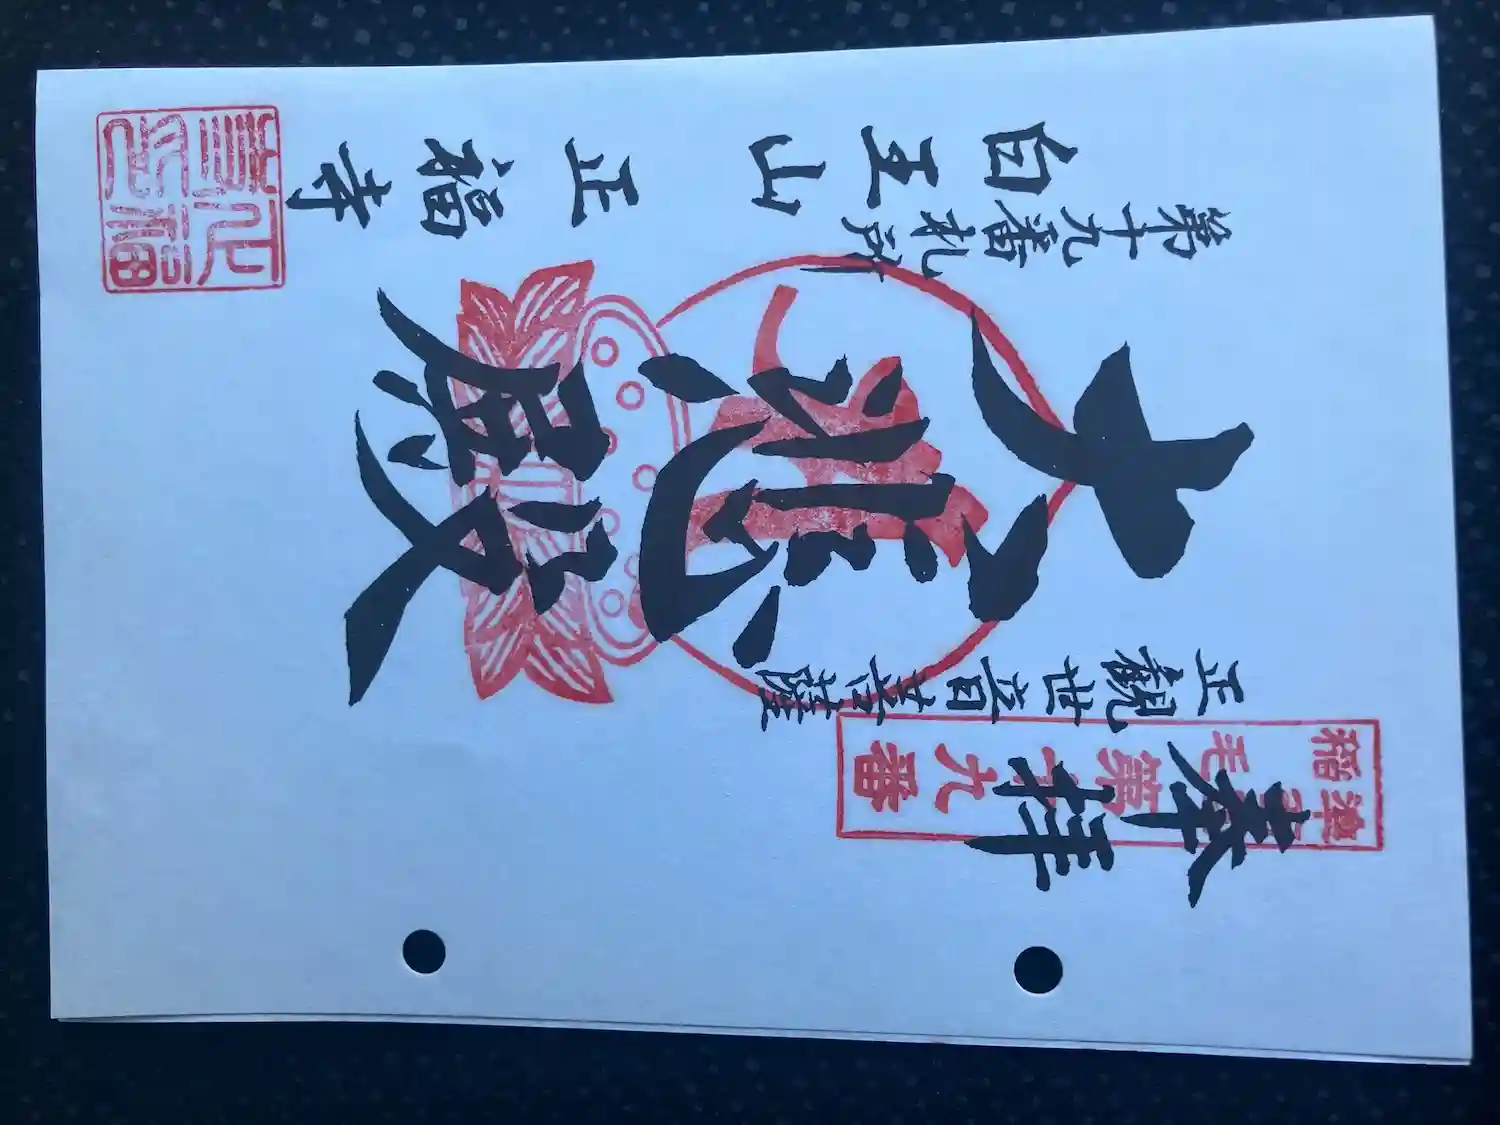 奉拝
稲毛
第十九番
正観世音菩薩
大悲殿
第十九番札所
白王山
正福寺